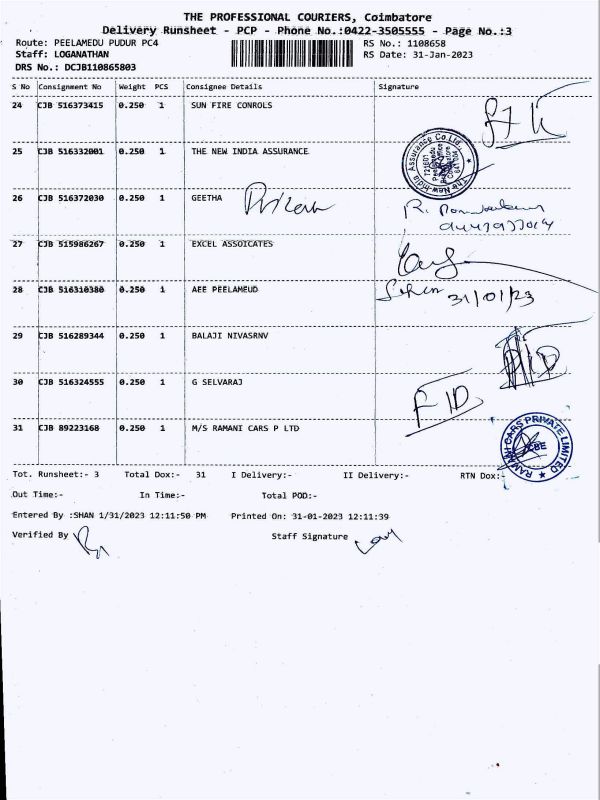 THE PROFESSIONAL COURIERS, Coimbatore
Delivery Runsheet - PCP - Phone No.:0422-3505555 - Page No.:3
Route: PEELAMEDU PUDUR PC4 RS No.: 1108658
Staff: LOGANATHAN RS Date: 31-Jan-2023
DRS No.: DCJB110865803
S No Consignment No Weight PCS Consignee Details Signature
24 CJB 516373415 0.250 1 SUN FIRE CONROLS
25 CJB 516332001 0.250 1 THE NEW INDIA ASSURANCE
The New India Assurance Co.Ltd.
26 CJB 516372030 0.250 1 GEETHA
27 CJB 515986267 0.250 1 EXCEL ASSOICATES
28 CJB 516310380 0.250 1 AEE PEELAMEUD
31/01/23
29 CJB 516289344 0.250 1 BALAJI NIVASRNV
30 CJB 516324555 0.250 1 G SELVARAJ
31 CJB 89223168 0.250 1 M/S RAMANI CARS P LTD
RAMANI CARS PRIVATE LIMITED
CBE
Tot. Runsheet:- 3 Total Dox:- 31 I Delivery:- II Delivery:- RTN Dox:-
Out Time:- In Time:- Total POD:-
Entered By :SHAN 1/31/2023 12:11:50 PM Printed On: 31-01-2023 12:11:39
Verified By Staff Signature